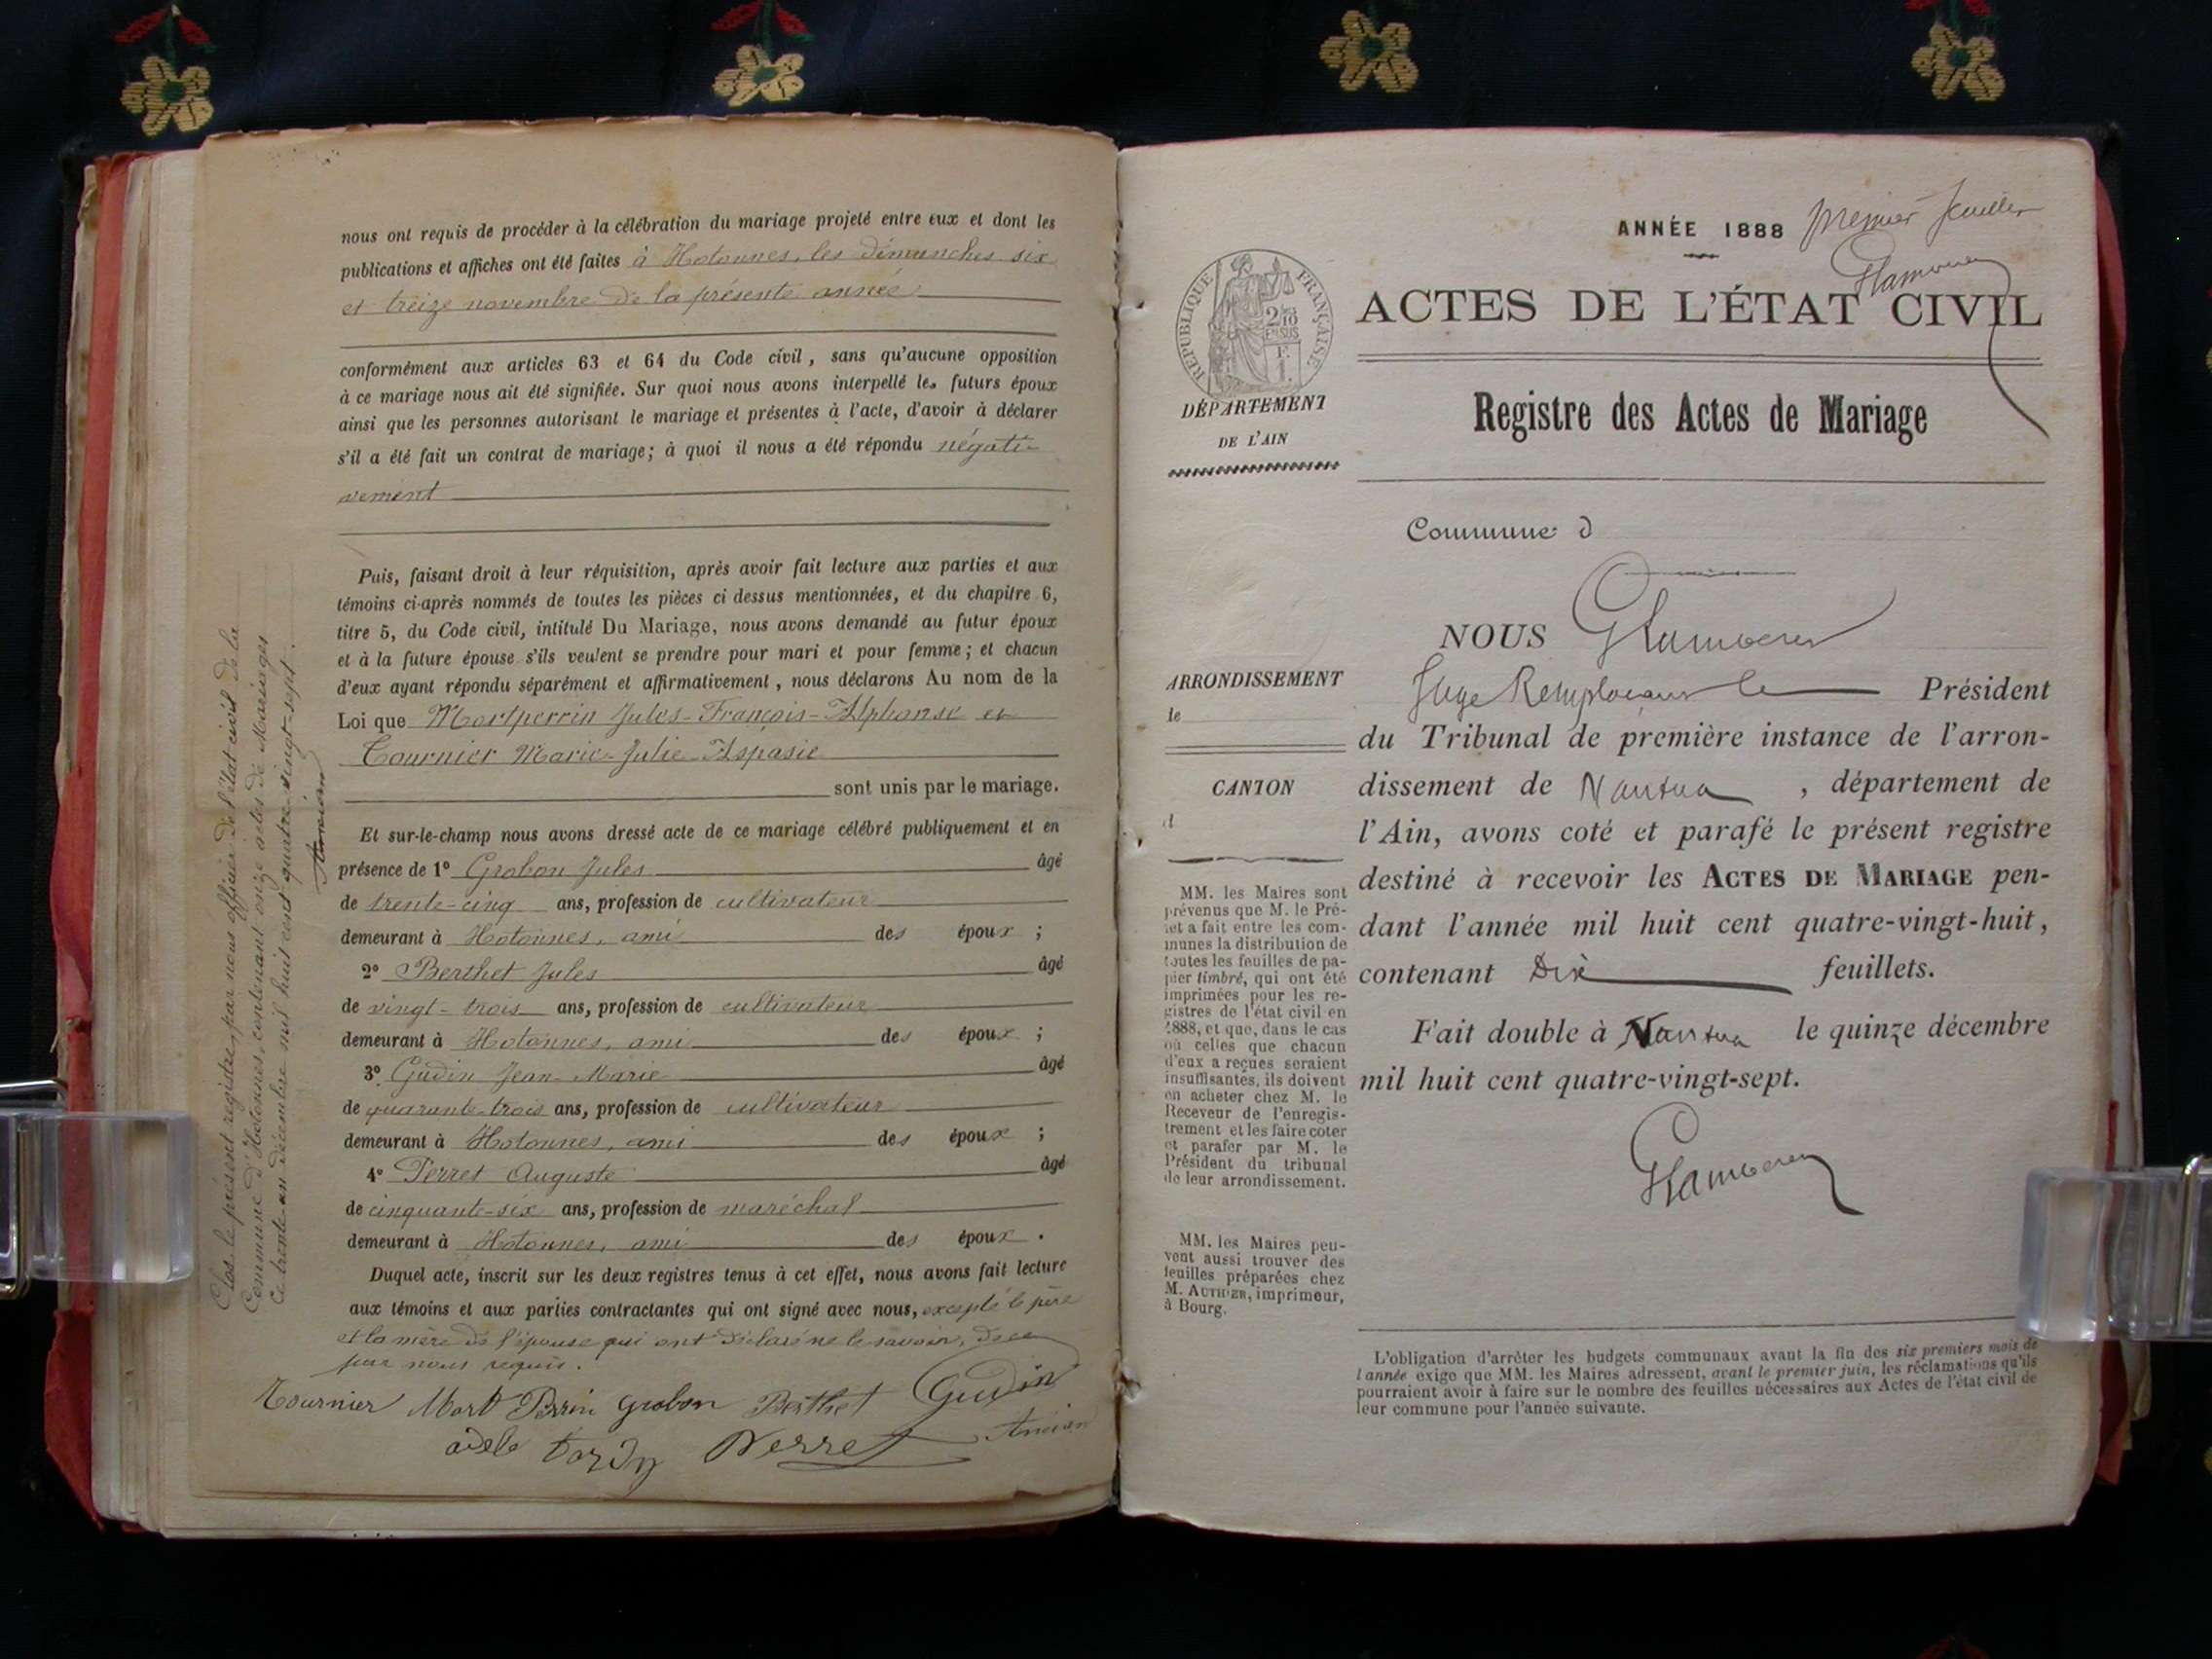 nous ont requis de procéder à la célébration du mariage projeté entre eux et dont les
publications et affiches ont été faites à Hotonnes, les dimanches six
et treize novembre de la présente année
conformément aux articles 63 et 64 du Code civil, sans qu'aucune opposition
à ce mariage nous ait été signifiée. Sur quoi nous avons interpellé les futurs époux
ainsi que les personnes autorisant le mariage et présentes à l'acte, d'avoir à déclarer
s'il a été fait un contrat de mariage; à quoi il nous a été répondu négati-
vement
Puis, faisant droit à leur réquisition, après avoir fait lecture aux parties et aux
témoins ci-après nommés de toutes les pièces ci dessus mentionnées, et du chapitre 6,
titre 5, du Code civil, intitulé Du Mariage, nous avons demandé au futur époux
et à la future épouse s'ils veulent se prendre pour mari et pour femme; et chacun
d'eux ayant répondu séparément et affirmativement, nous déclarons Au nom de la
Loi que Mortperrin Jules-François-Alphonse et
Tournier Marie-Julie-Aspasie
sont unis par le mariage.
Et sur-le-champ nous avons dressé acte de ce mariage célébré publiquement et en
présence de 1° Grobon Jules âgé
de trente-cinq ans, profession de cultivateur
demeurant à Hotonnes, ami des époux ;
2° Berthet Jules âgé
de vingt-trois ans, profession de cultivateur
demeurant à Hotonnes, ami des époux ;
3° Gudin Jean-Marie âgé
de quarante-trois ans, profession de cultivateur
demeurant à Hotonnes, ami des époux ;
4° Perret Auguste âgé
de cinquante-six ans, profession de maréchal
demeurant à Hotonnes, ami des époux .
Duquel acte, inscrit sur les deux registres tenus à cet effet, nous avons fait lecture
aux témoins et aux parties contractantes qui ont signé avec nous, excepté le père
et la mère de l'épouse qui ont déclaré ne le savoir, de ce
par nous requis.
Tournier Mort Perrin Grobon Berthet Gudin
adele tardy Perret Ancian
Clos le présent registre, par nous officier de l'état civil de la
Commune d'Hotonnes, contenant onze actes de Mariages
Ce trente-un décembre mil huit cent quatre-vingt-sept.
Ancian
ANNÉE 1888 premier feuillet
ACTES DE L'ÉTAT CIVIL
RÉPUBLIQUE FRANÇAISE
2/10
EN SUS
DÉPARTEMENT
DE L'AIN
Registre des Actes de Mariage
Commune d
NOUS
Juge Remplaçant le Président
du Tribunal de première instance de l'arron-
dissement de Nantua , département de
l'Ain, avons coté et parafé le présent registre
destiné à recevoir les ACTES DE MARIAGE pen-
dant l'année mil huit cent quatre-vingt-huit,
contenant Dix feuillets.
Fait double à Nantua le quinze décembre
mil huit cent quatre-vingt-sept.
ARRONDISSEMENT
de
CANTON
d
MM. les Maires sont
prévenus que M. le Pré-
fet a fait entre les com-
munes la distribution de
toutes les feuilles de pa-
pier timbré, qui ont été
imprimées pour les re-
gistres de l'état civil en
1888, et que, dans le cas
où celles que chacun
d'eux a reçues seraient
insuffisantes, ils doivent
en acheter chez M. le
Receveur de l'enregis-
trement et les faire coter
et parafer par M. le
Président du tribunal
de leur arrondissement.
MM. les Maires peu-
vent aussi trouver des
feuilles préparées chez
M. AUTHIER, imprimeur,
à Bourg.
L'obligation d'arrêter les budgets communaux avant la fin des six premiers mois de
l'année exige que MM. les Maires adressent, avant le premier juin, les réclamations qu'ils
pourraient avoir à faire sur le nombre des feuilles nécessaires aux Actes de l'état civil de
leur commune pour l'année suivante.